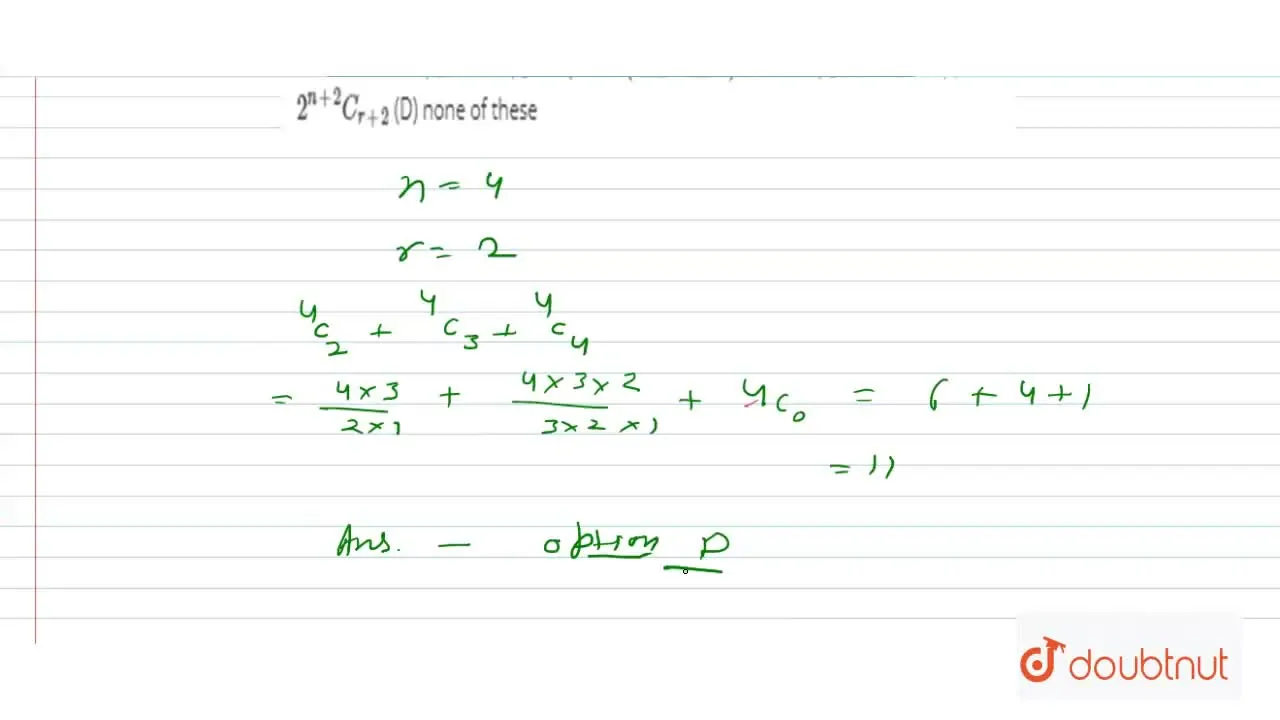 2^{n+2}C_{r+2} (D) none of these
n = 4
r = 2
⁴C₂ + ⁴C₃ + ⁴C₄
= 4×3/2×1 + 4×3×2/3×2×1 + ⁴C₀ = 6 + 4 + 1
= 11
Ans. — option D
doubtnut